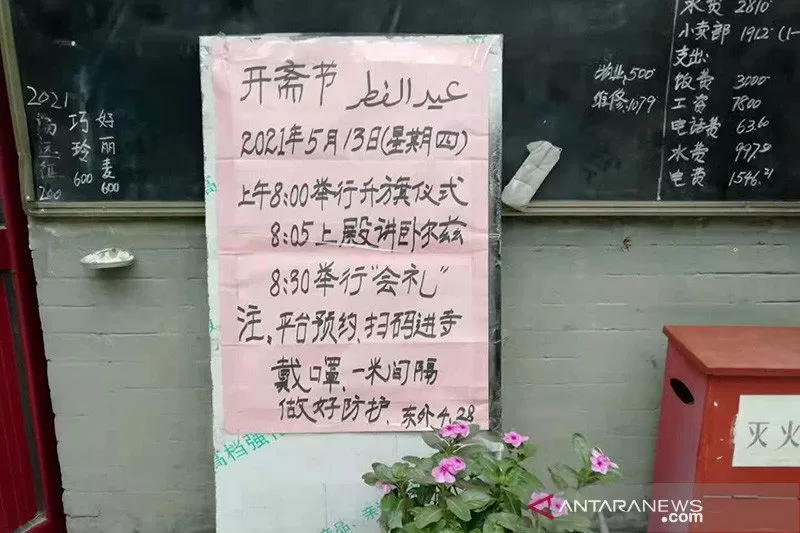 开斋节 عيد الفطر
2021年5月13日(星期四)
上午8:00举行升旗仪式
8:05上殿讲卧尔兹
8:30举行"会礼"
注、平台预约、扫码进寺
戴口罩、一米间隔
做好防护、东外4.28
2021
杨远征 200
巧玲 600
好丽麦 600
物业,500
维修,1079
水费 2810
小卖部 1912
支出:
饭费 3000
工资 7800
电话费 63.6
水费 997.8
电费 1546.21
灭火
高档强
ANTARANEWS
.com